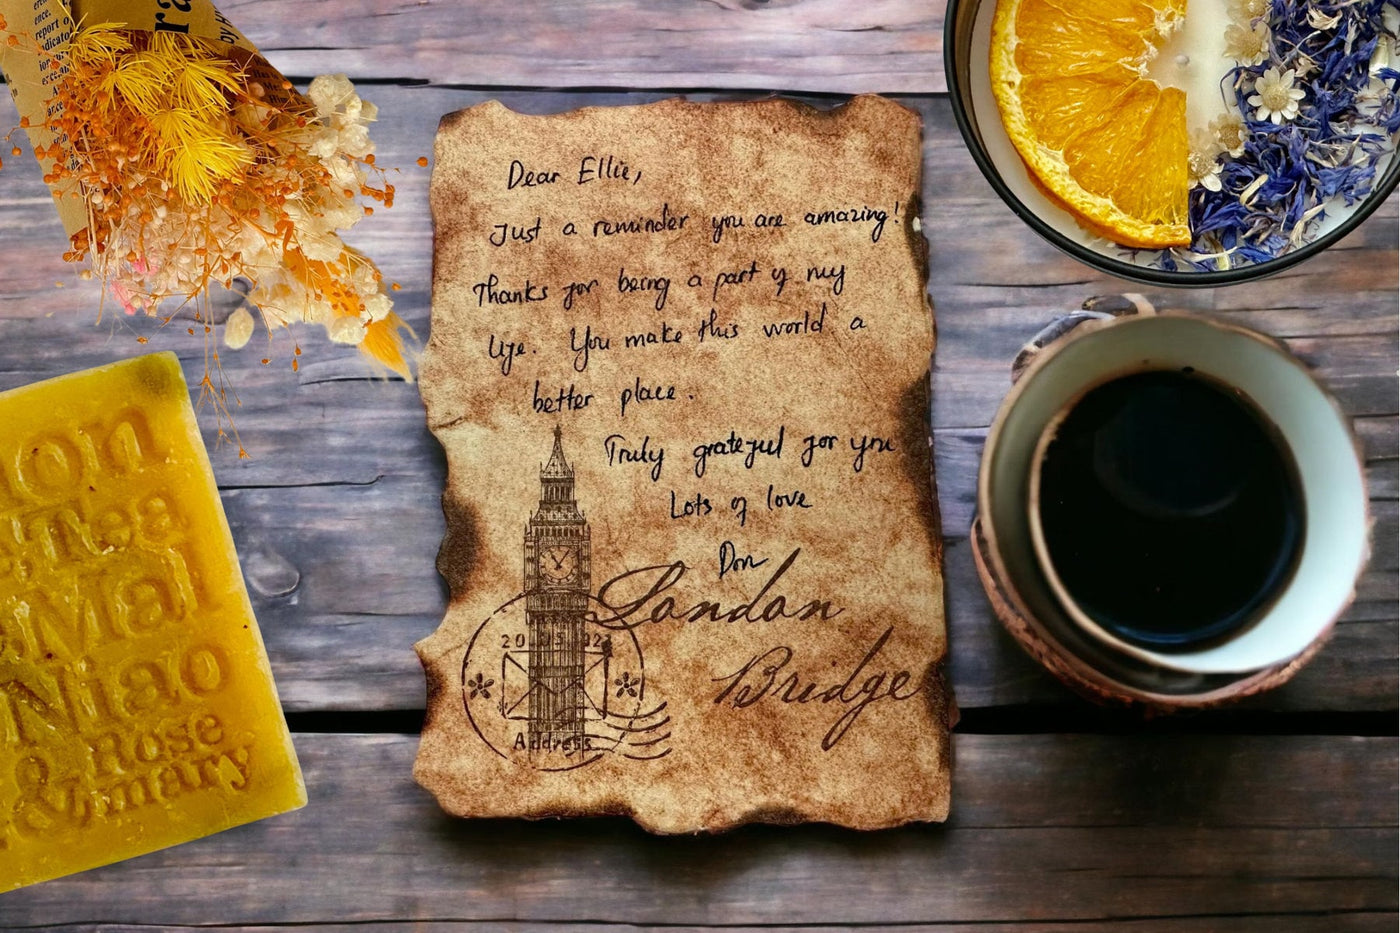 Dear Ellie,
Just a reminder you are amazing!
Thanks for being a part of my
life. You make this world a
better place.
Truly grateful for you
Lots of love
Don
London
Bridge
Address
on
Tea
Mal
Niao
Rose
& mary
ra
report o